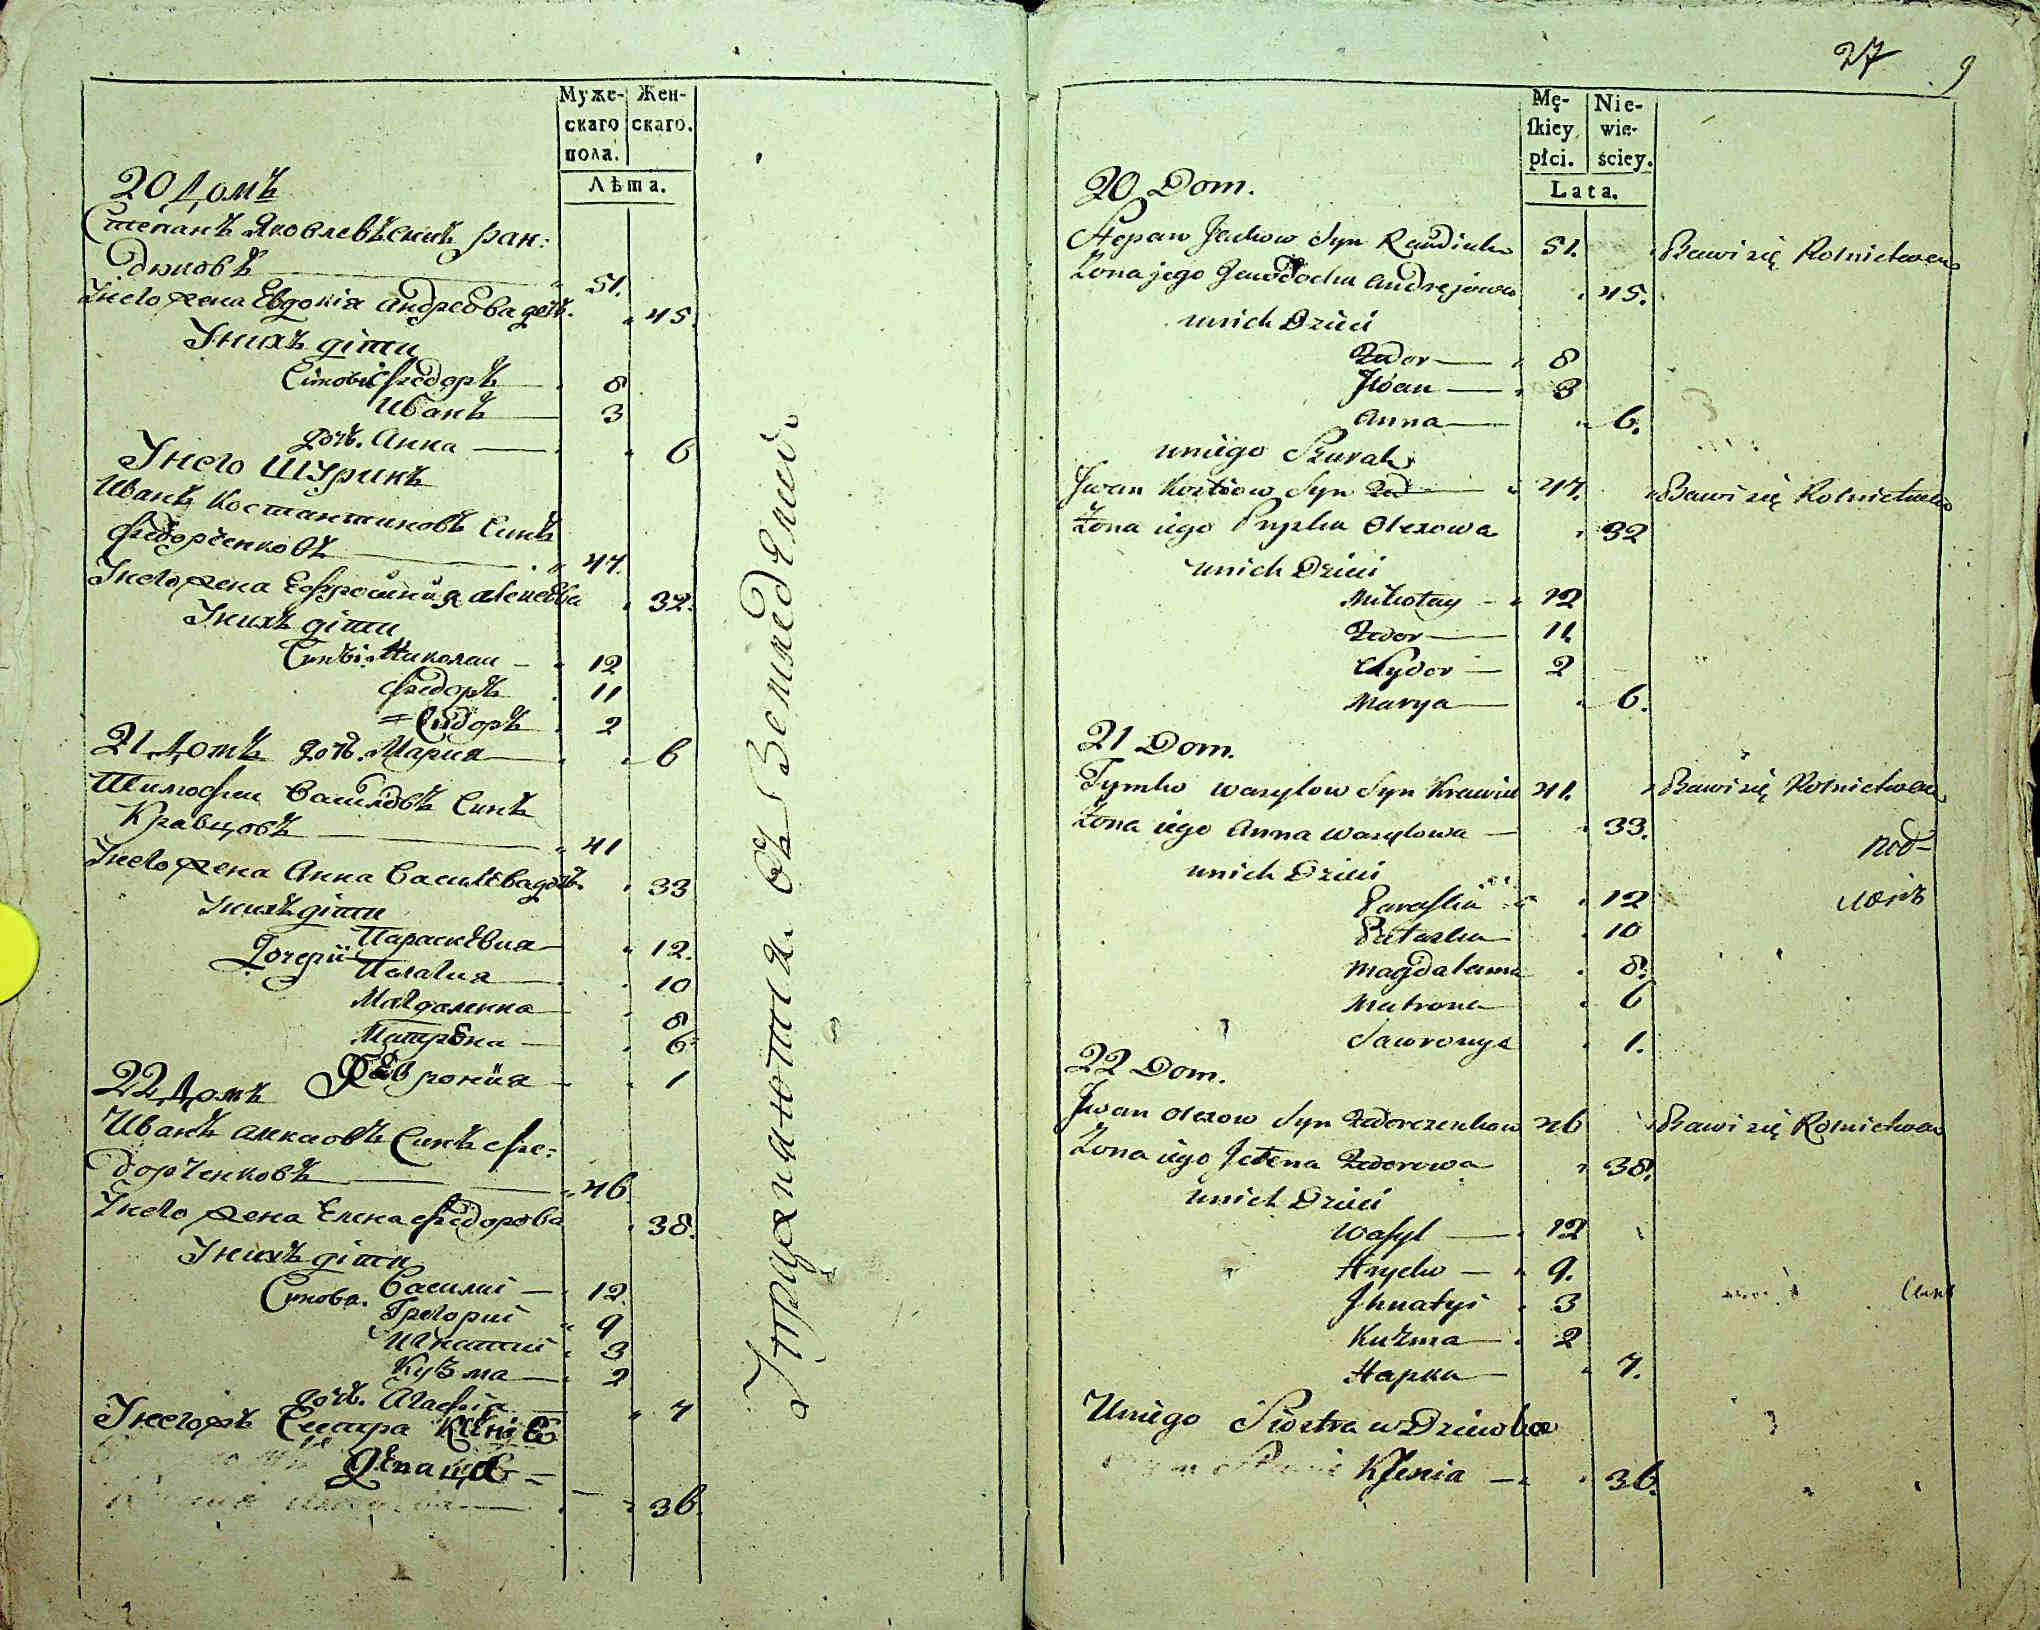 Муже-
скаго
пола.
Жен-
скаго.
Лѣта.
20 Домъ
Степанъ Яковлевъ синъ ран:
дюковъ 51.
Унего жена Евдокія андреева доч. 45.
Унихъ діти
Синові Федоръ 8
Иванъ 3
доч. Анна 6
Унего Шуринъ
Иванъ Костантиновъ Синъ
Федорченковъ 47.
Унего жена Ефросинія 32.
Унихъ діти
Синві Николаи 12
Федоръ 11
Сидоръ 2
21 Домъ доч. Мария 6
Тимофеи Василовъ Синъ
Кравцовъ 41
Унего жена Анна Василева доч. 33
Унихъ діти
Дочеріи Параскевия 12.
Пелагия 10
Магдаленна 8
Матрона 6
Февронія 1
22 Домъ
Иванъ Синъ Фе:
дорченковъ 46
Унего жена Елена Федорова 38.
Унихъ діти
Синова. Василиі 12
Григориі 9
Игнатиі 3
Кузма 2
доч. Агафія 7
Унегожъ Сестра Ксенія
Девица
36.
Упражняются въ Земледелии
27 9
Mę-
ſkiey
płci.
Nie-
wie-
ściey.
Lata.
20 Dom.
Stepan Jackow Syn Randiuk 51. Bawi się Rolnictwem
Żona jego Jewdocha Andrejowa 45.
unich Dzieci
Fedor 8
Iwan 3
Anna 6.
uniego Szurak
Iwan Kostiow Syn Fed 47. Bawi się Rolnictwem
Żona iego Pryska Olexowa 32
unich Dzieci
Mikołay 12
Fedor 11
Sydor 2
Marya 6.
21 Dom.
Tymko Wasylow Syn Krawiec 41. Bawi się Rolnictwem
Żona iego Anna Wasylowa 33.
unich Dzieci
Paraska 12
Palaszka 10
Magdalenna 8.
Matrona 6
Jawronya 1.
22 Dom.
Iwan Olexow Syn Fedorczenkow 46 Bawi się Rolnictwem
Żona iego Jelena Fedorowa 38.
unich Dzieci
Wasyl 12
Hrycko 9.
Ihnatyi 3
Kuzma 2
Hapka 7.
Uniego Siostra
Xsenia 36.